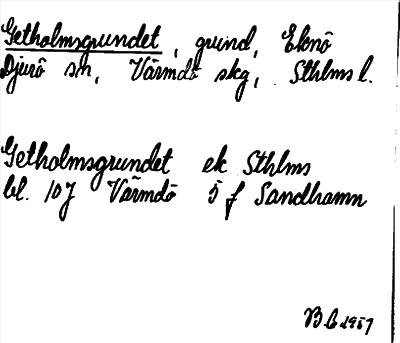 Getholmsgrundet, grund, Eknö
Djurö sn, Värmdö skg, Sthlms l.
Getholmsgrundet ek Sthlms
bl. 107 Värmdö 5 f Sandhamn
1957